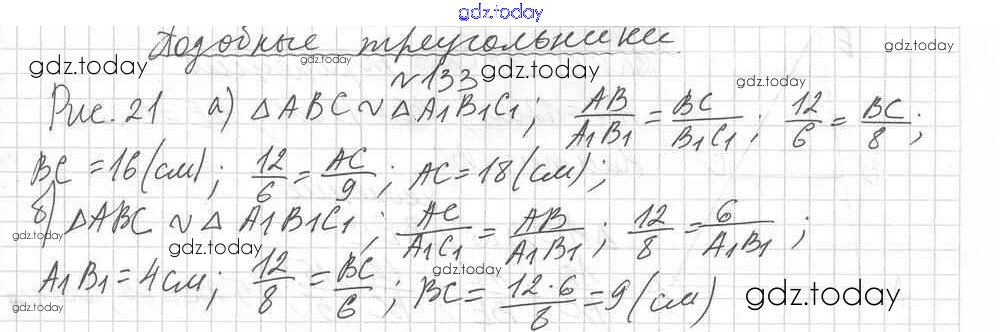 gdz.today
Подобные треугольники
gdz.today gdz.today gdz.today
№133 gdz.today gdz.today
Рис. 21 а) △ABC ~ △A1B1C1; AB/A1B1 = BC/B1C1; 12/6 = BC/8;
BC = 16 (см); 12/6 = AC/9; AC = 18 (см);
б) △ABC ~ △A1B1C1; AC/A1C1 = AB/A1B1; 12/8 = 6/A1B1;
gdz.today gdz.today gdz.today
A1B1 = 4 см; 12/8 = BC/6; BC = 12·6/8 = 9 (см)
gdz.today gdz.today